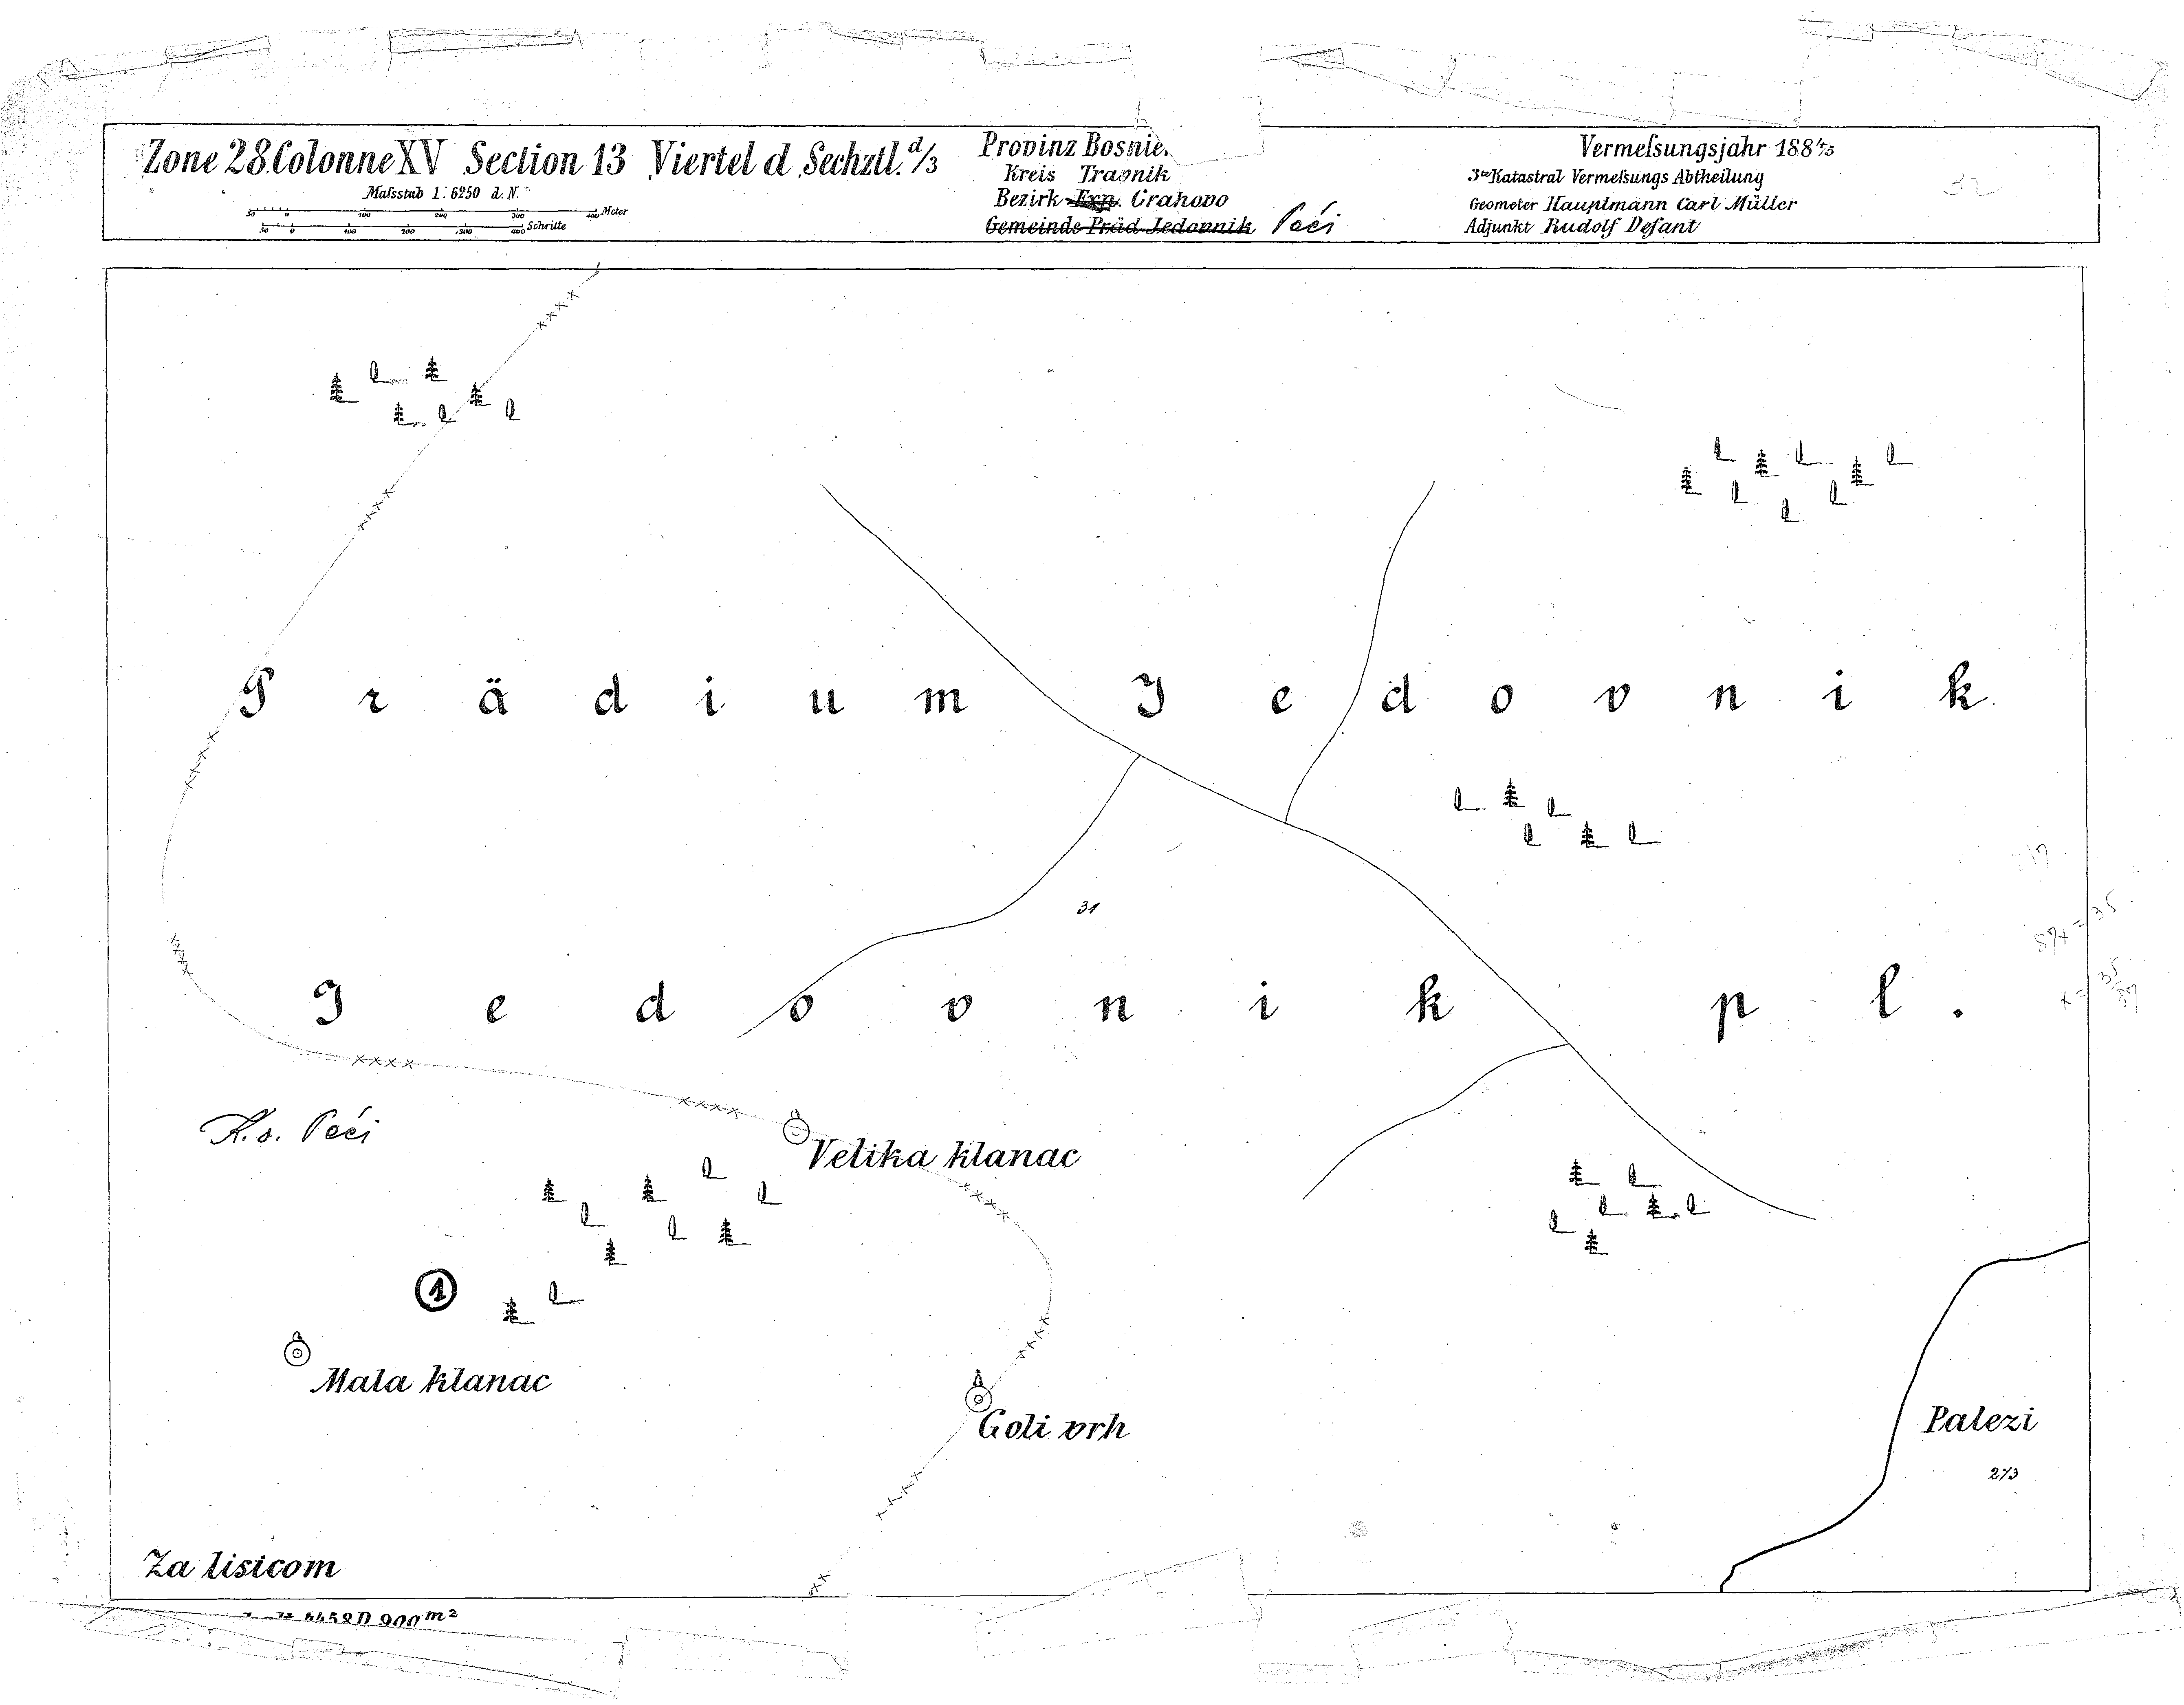 Zone 28. Colonne XV Section 13 Viertel d Sechztl. d/3
Maſsstab 1:6250 d. N.
50 0 100 200 300 400 Meter
50 0 100 200 300 400 Schritte
Provinz Bosnie
Kreis Travnik
Bezirk Exp. Grahovo
Gemeinde Präd Jedovnik Peći
Vermeſsungsjahr 1884/5
3te Katastral Vermeſsungs Abtheilung
Geometer Hauptmann Carl Müller
Adjunkt Rudolf Defant
32
Prädium Jedovnik
31
Jedovnik pl.
K.o. Peći
Velika klanac
1
Mala klanac
Goli vrh
Palezi
273
Za lisicom
900 m²